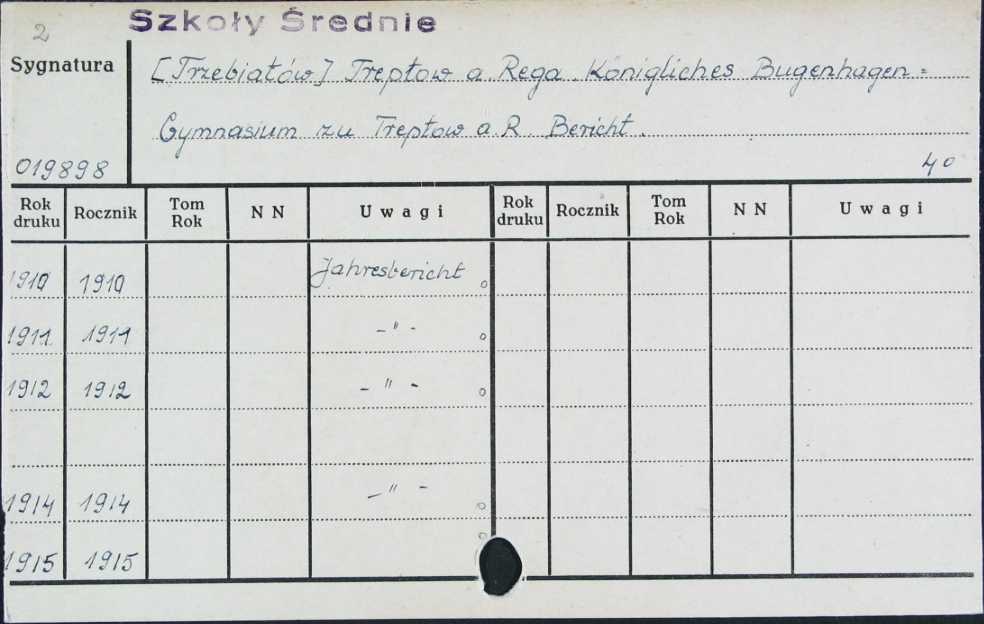 2
Szkoły Średnie
Sygnatura
[Trzebiatów] Treptow a Rega Königliches Bugenhagen=
Gymnasium zu Treptow a. R. Bericht.
019898
4o
Rok druku Rocznik Tom Rok N N Uwagi Rok druku Rocznik Tom Rok N N Uwagi
1910 1910 Jahresbericht o
1911 1911 -"- o
1912 1912 -"- o
1914 1914 -"- o
1915 1915 o